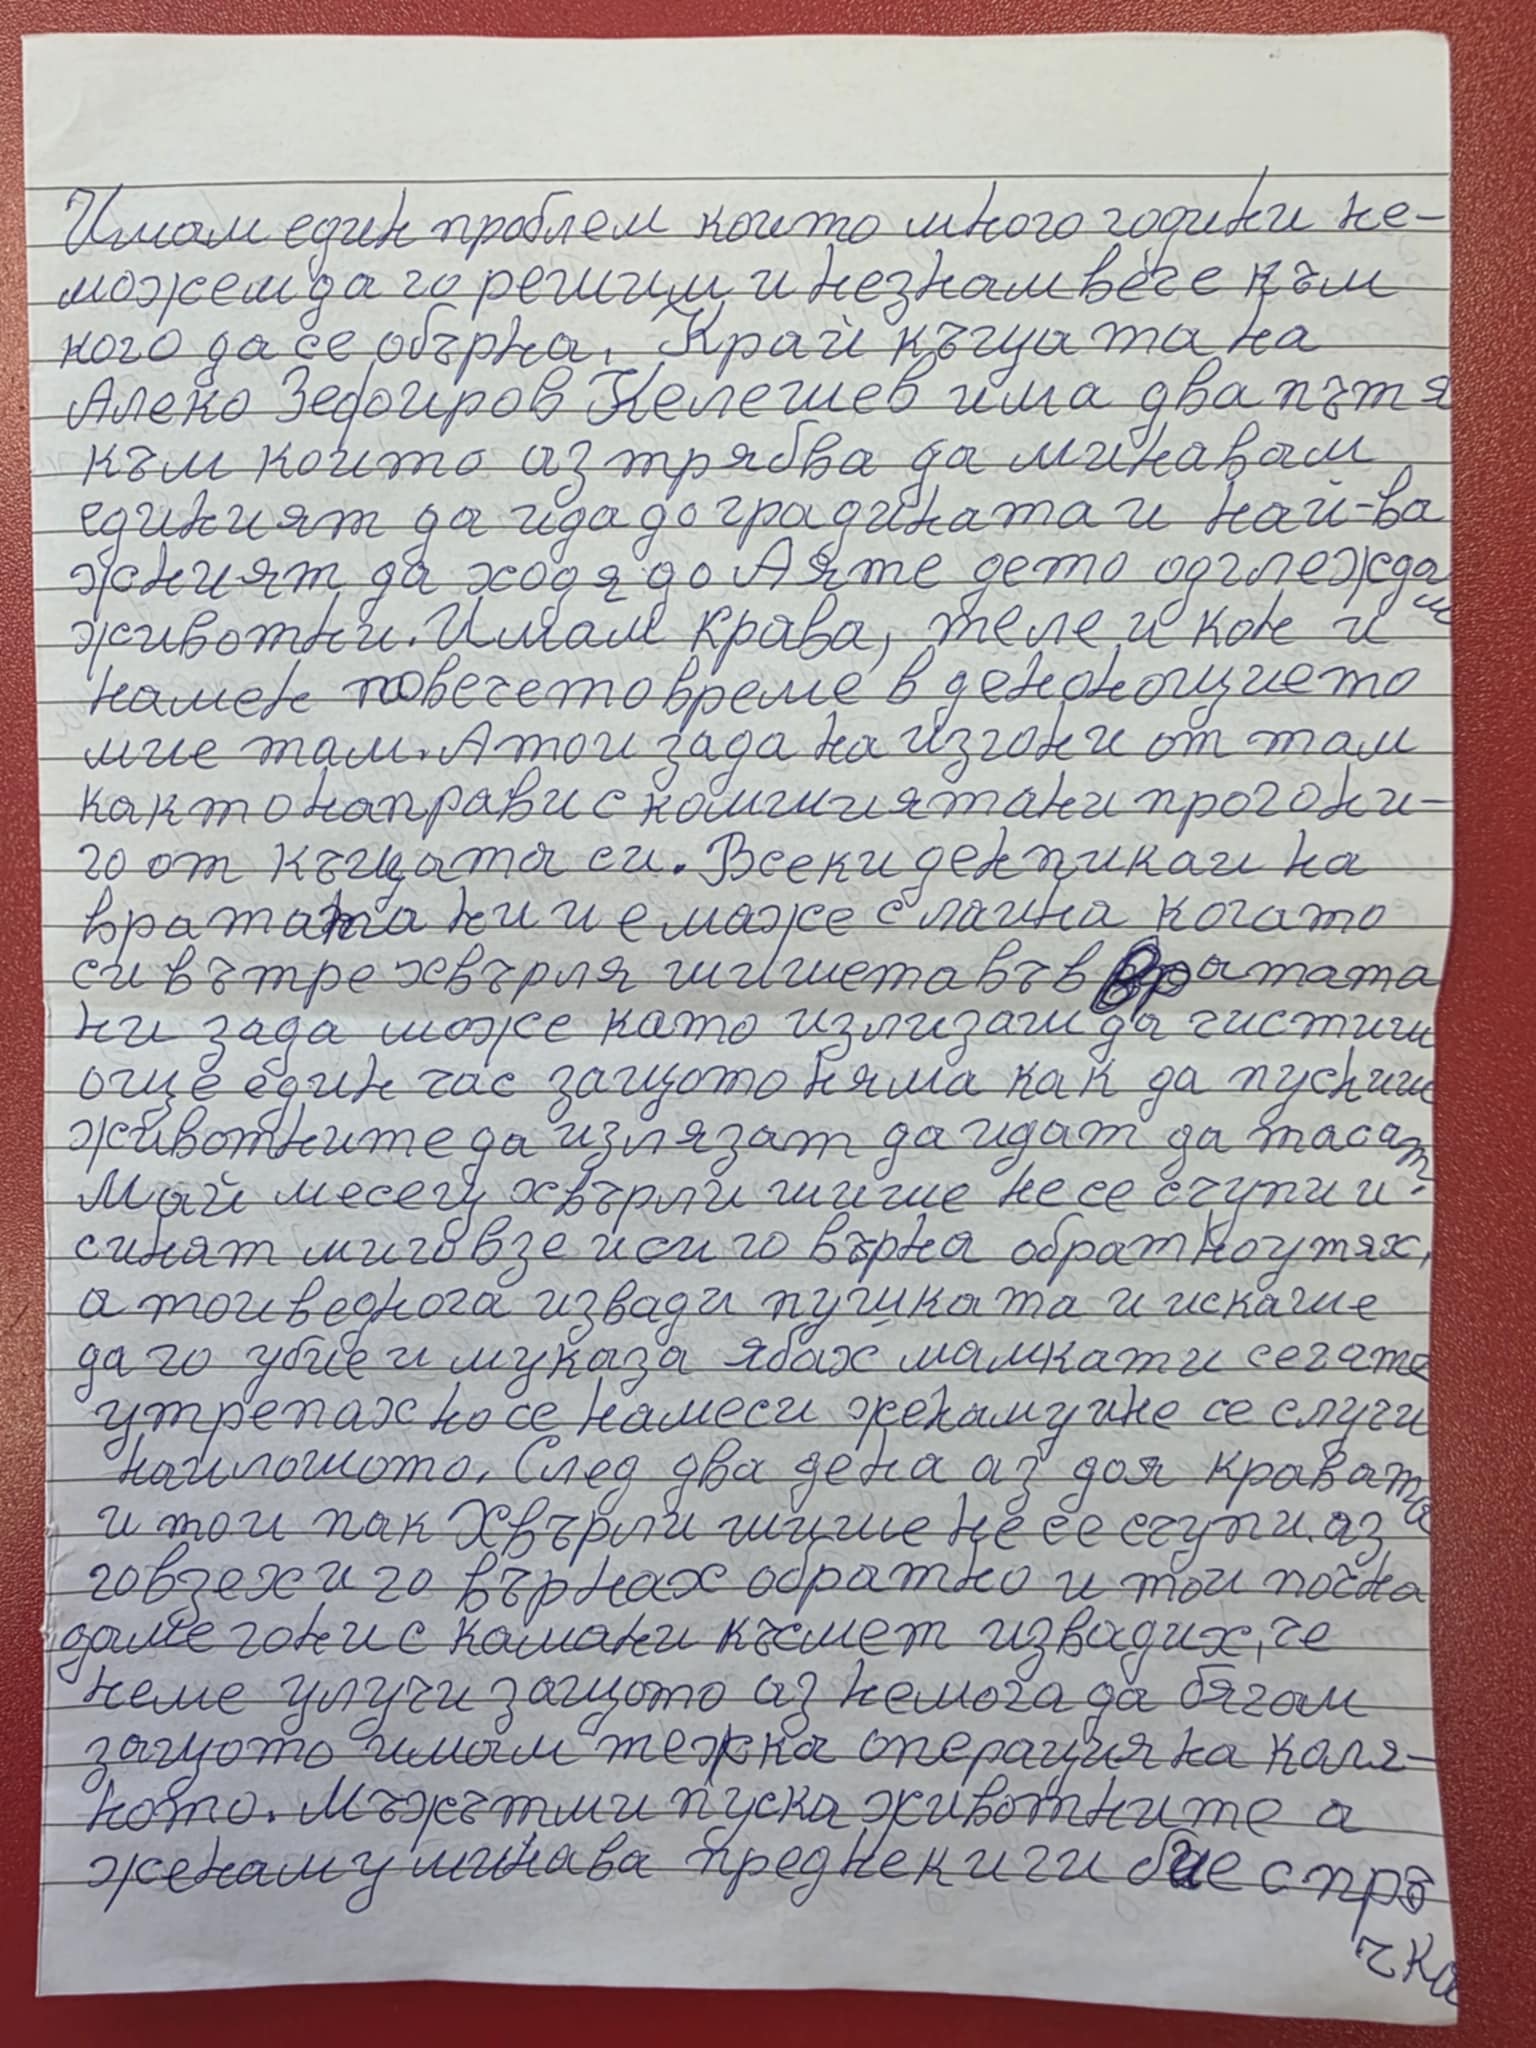 Имам един проблем които много години не-
можем да го решим и незнам вече към
кого да се обърна. Край къщата на
Алеко Зефоиров Келешев има два пътя
към които аз трябва да минавам
единият да ида до градината и най-ва
жният да ходя до Аяте дето одглеждам
животни. Имам крава, теле и кон и
намен повечето време в денонощието
мие там. А тои зада на изгони от там
както направи с комшиятани прогони-
го от къщата си. Всеки ден пикаи на
вратата ни и е маже с лаина когато
си вътре хвърля шишета във вратата
ни зада може като излизаш да чистиш
още един час защото няма как да пусниш
животните да излязат да идат да пасат.
Май месец хвърли шише не се счупи и
синят ми го взе и си го върна обратно у тях,
а тои веднога извади пушката и искаше
да го убие и му каза ябах мамкати сегате
утрепах но се намеси женаму и не се случи
наилошото. След два дена аз доя кравата
и тои пак хвърли шише не се счупи. аз
говзех и го върнах обратно и тои почна
даме гони с камани късмет извадих, че
неме улучи защото аз немога да бягам
защото имам тежка операция на каля-
ното. Мъжътми пуска животните а
женаму минава преднеки ги бие с пръ
чка